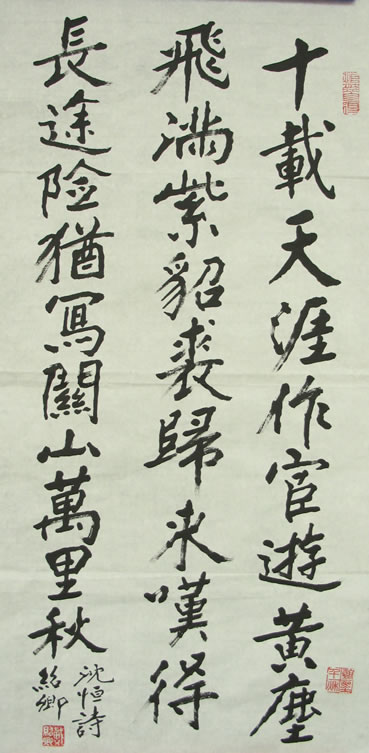 十載天涯作宦遊黃塵
飛滿紫貂裘歸来嘆得
長途險猶寫關山萬里秋
沈恒詩
紹卿